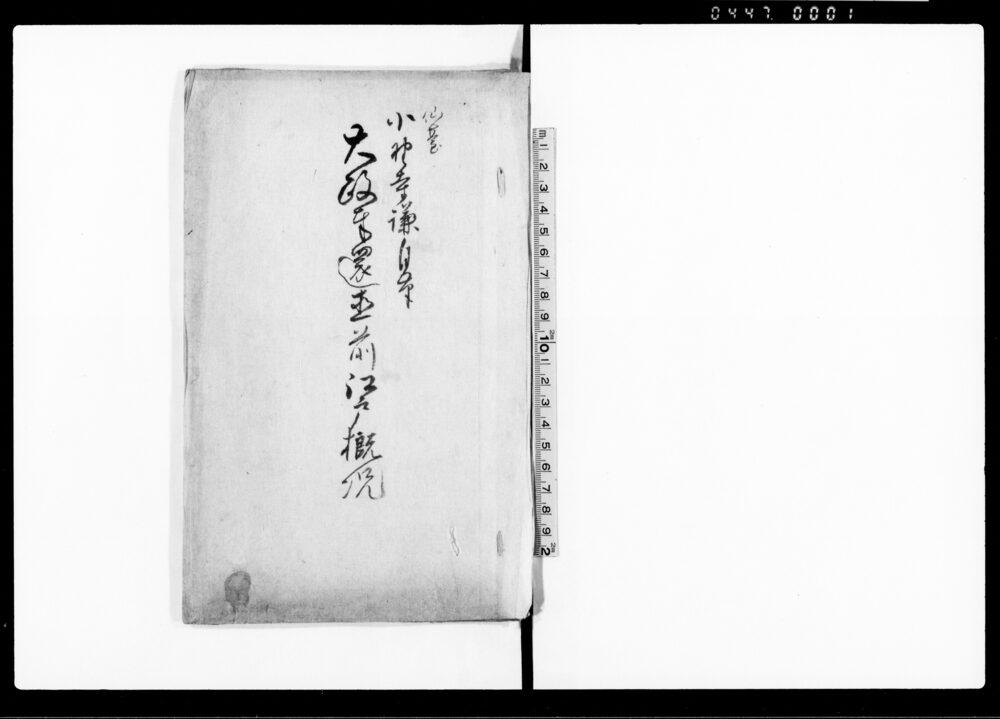 0447. 0001
仙臺
小野寺謙自筆
大政奉還直前江戸ノ概況
m 1 2 3 4 5 6 7 8 9 10 1 2 3 4 5 6 7 8 9 2